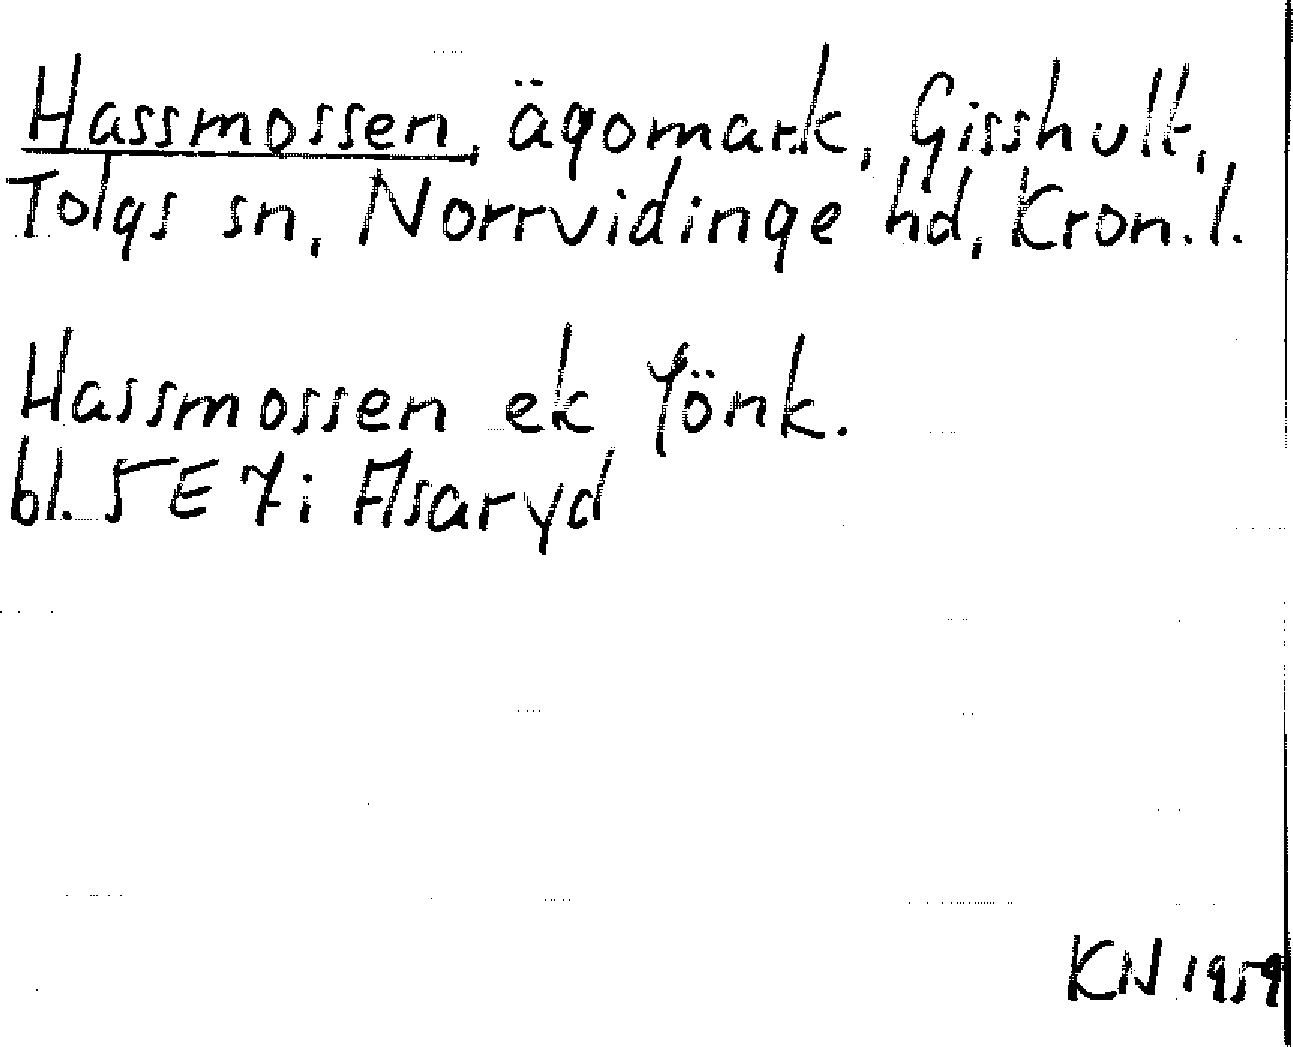 Hassmossen, ägomark, Gisshult,
Tolgs sn, Norrvidinge hd, Kron. l.
Hassmossen ek Jönk.
bl. 5 E 7i Asaryd
KN 1959